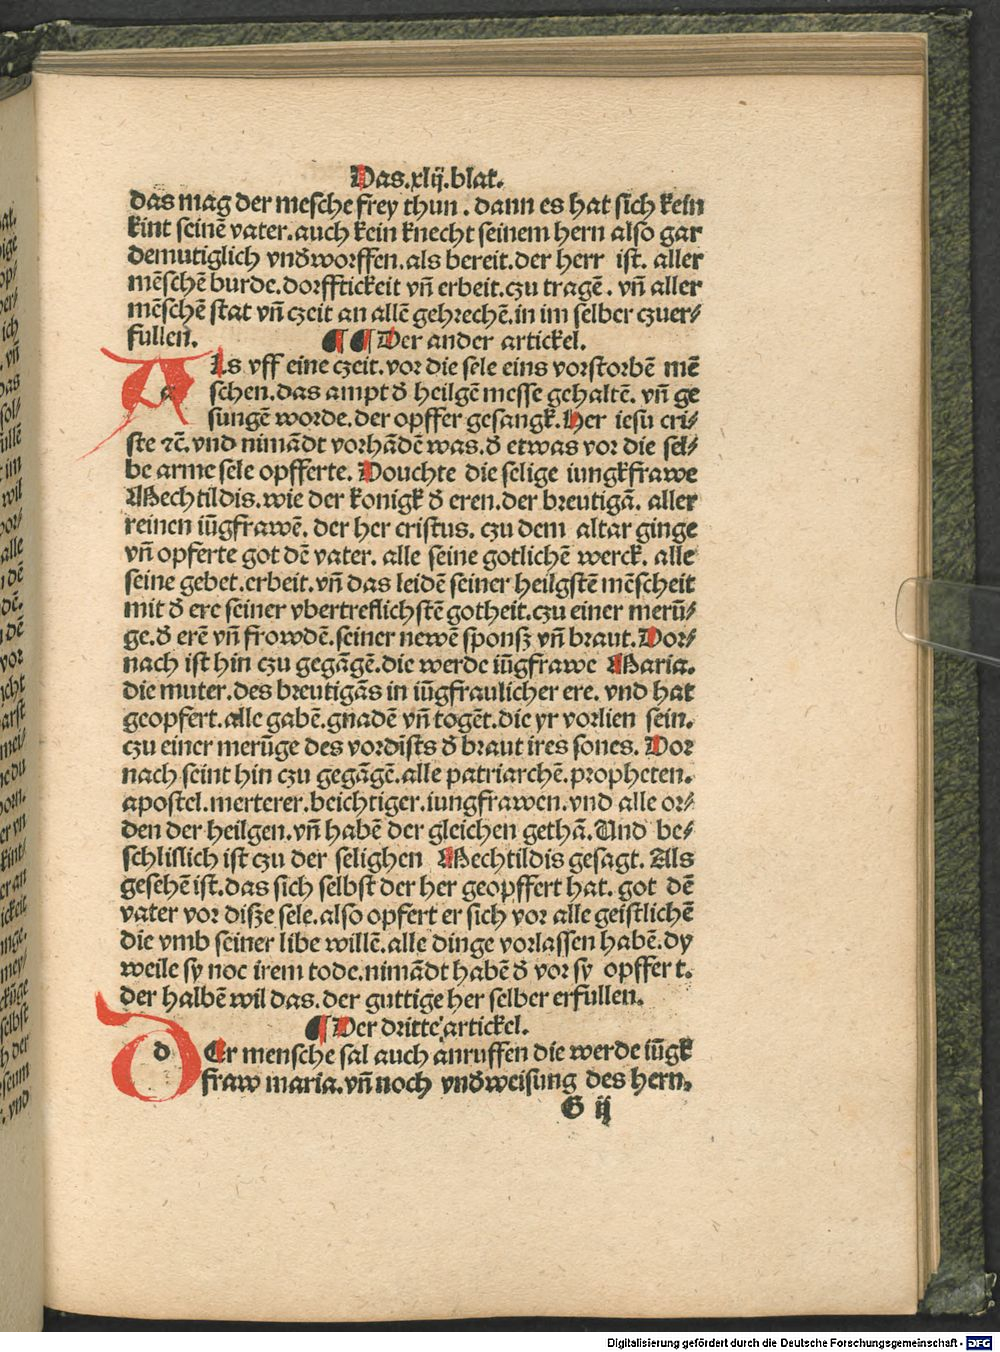 Das.xlij.blat.
das mag der mesche frey thun. dann es hat sich kein
kint seinē vater.auch kein knecht seinem hern also gar
demutiglich vnd̕worffen.als bereit.der herr ist. aller
mēschē burde.dorfftickeit vn̄ erbeit.czu tragē. vn̄ aller
mēschē stat vn̄ czeit an allē gehrechē.in im selber czuer⸗
fullen. ¶ ¶ Der ander artickel.
Als vff eine czeit.vor die sele eins vorstorbē mē
schen.das ampt d̕ heilgē messe gehaltē. vn̄ ge
sungē worde.der opffer gesangk.Her iesu cri⸗
ste ⁊c̄.vnd nimādt vorhādē was.d̕ etwas vor die sel⸗
be arme sele opfferte. Douchte die selige iungkfrawe
Mechtildis.wie der konigk d̕ eren.der breutigā. aller
reinen iūgfrawē. der her cristus. czu dem altar ginge
vn̄ opferte got dē vater. alle seine gotlichē werck. alle
seine gebet.erbeit.vn̄ das leidē seiner heilgstē mēscheit
mit d̕ ere seiner vbertreflichstē gotheit.czu einer merū⸗
ge.d̕ erē vn̄ frowdē.seiner newē sponsz vn̄ braut.Dor⸗
nach ist hin czu gegāgē.die werde iūgfrawe Maria.
die muter.des breutigās in iūgfraulicher ere. vnd hat
geopfert.alle gabē.gnadē vn̄ togēt.die yr vorlien sein.
czu einer merūge des vordīsts d̕ braut ires sones. Dor
nach seint hin czu gegāgē.alle patriarchē.propheten.
apostel.merterer.beichtiger.iungfrawen.vnd alle or⸗
den der heilgen.vn̄ habē der gleichen gethā.Und be⸗
schlislich ist czu der selighen Mechtildis gesagt. Als
gesehē ist.das sich selbst der her geopffert hat. got dē
vater vor disze sele.also opfert er sich vor alle geistlichē
die vmb seiner libe willē.alle dinge vorlassen habē.dy
weile sy noc irem tode.nimādt habē d̕ vor sy opffer t.
der halbē wil das.der guttige her selber erfullen.
¶ Der dritte artickel.
d Er mensche sal auch anruffen die werde iūgk
fraw maria.vn̄ noch vnd̕weisung des hern.
G ij
Digitalisierung gefördert durch die Deutsche Forschungsgemeinschaft - DFG